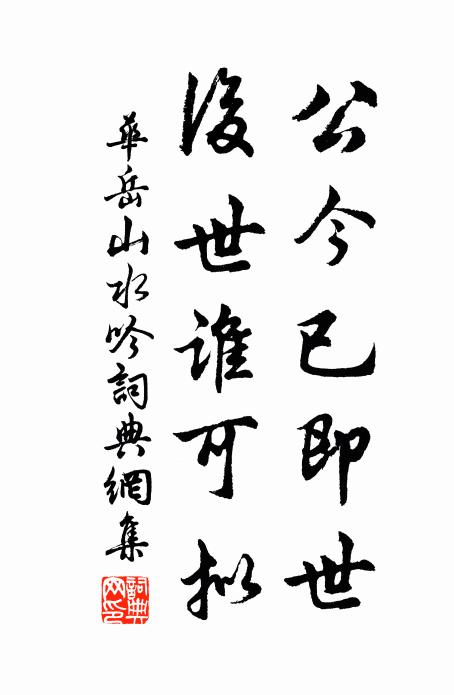 公今已即世
後世誰可拟
華岳山水吟詞典網集
詞典網印